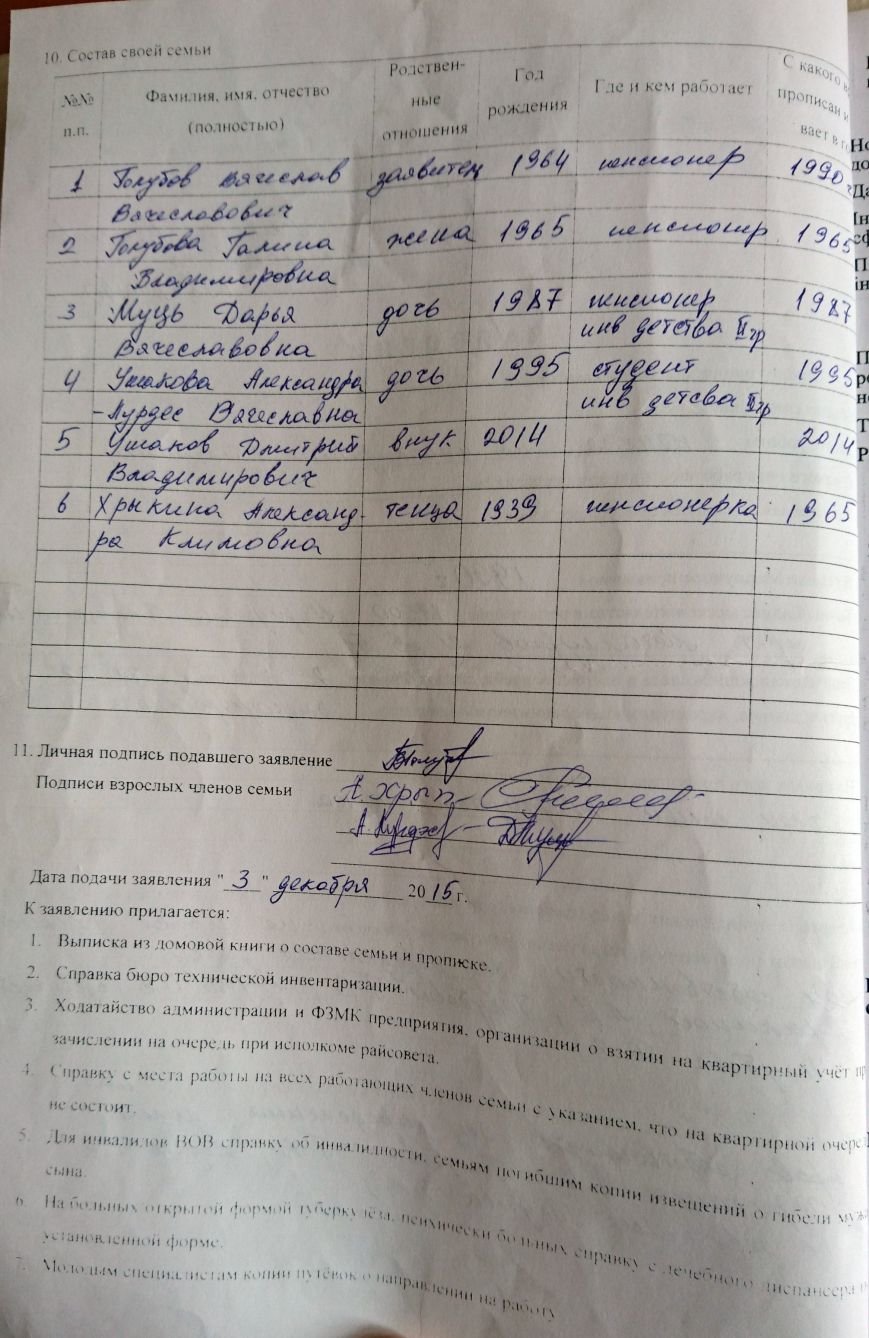 10. Состав своей семьи
№№ п.п.
Фамилия, имя, отчество (полностью)
Родствен- ные отношения
Год рождения
Где и кем работает
С какого
прописан и
вает в г.
1 Голубов Вячеслав заявитель 1964 пенсионер 1990
Вячеславович
2 Голубова Галина жена 1965 пенсионер 1965
Владимировна
3 Муць Дарья дочь 1987 пенсионер 1987
Вячеславовна инв детства II гр
4 Ушакова Александра дочь 1995 студент 1995
-Лурдес Вячеславна инв детсва II гр
5 Ушаков Дмитрий внук 2014 2014
Владимирович
6 Хрыкина Александ- теща 1939 пенсионерка 1965
ра Климовна
11. Личная подпись подавшего заявление
Подписи взрослых членов семьи
Дата подачи заявления "3" декабря 2015 г.
К заявлению прилагается:
1. Выписка из домовой книги о составе семьи и прописке.
2. Справка бюро технической инвентаризации.
3. Ходатайство администрации и ФЗМК предприятия, организации о взятии на квартирный учёт
зачислении на очередь при исполкоме райсовета.
4. Справку с места работы на всех работающих членов семьи с указанием, что на квартирной
не состоит.
5. Для инвалидов ВОВ справку об инвалидности, семьям погибшим копии извещений о гибели
сына.
6. На больных открытой формой туберкулёза, психически больных справку с лечебного диспансера
установленной форме.
7. Молодым специалистам копии путёвок о направлении на работу